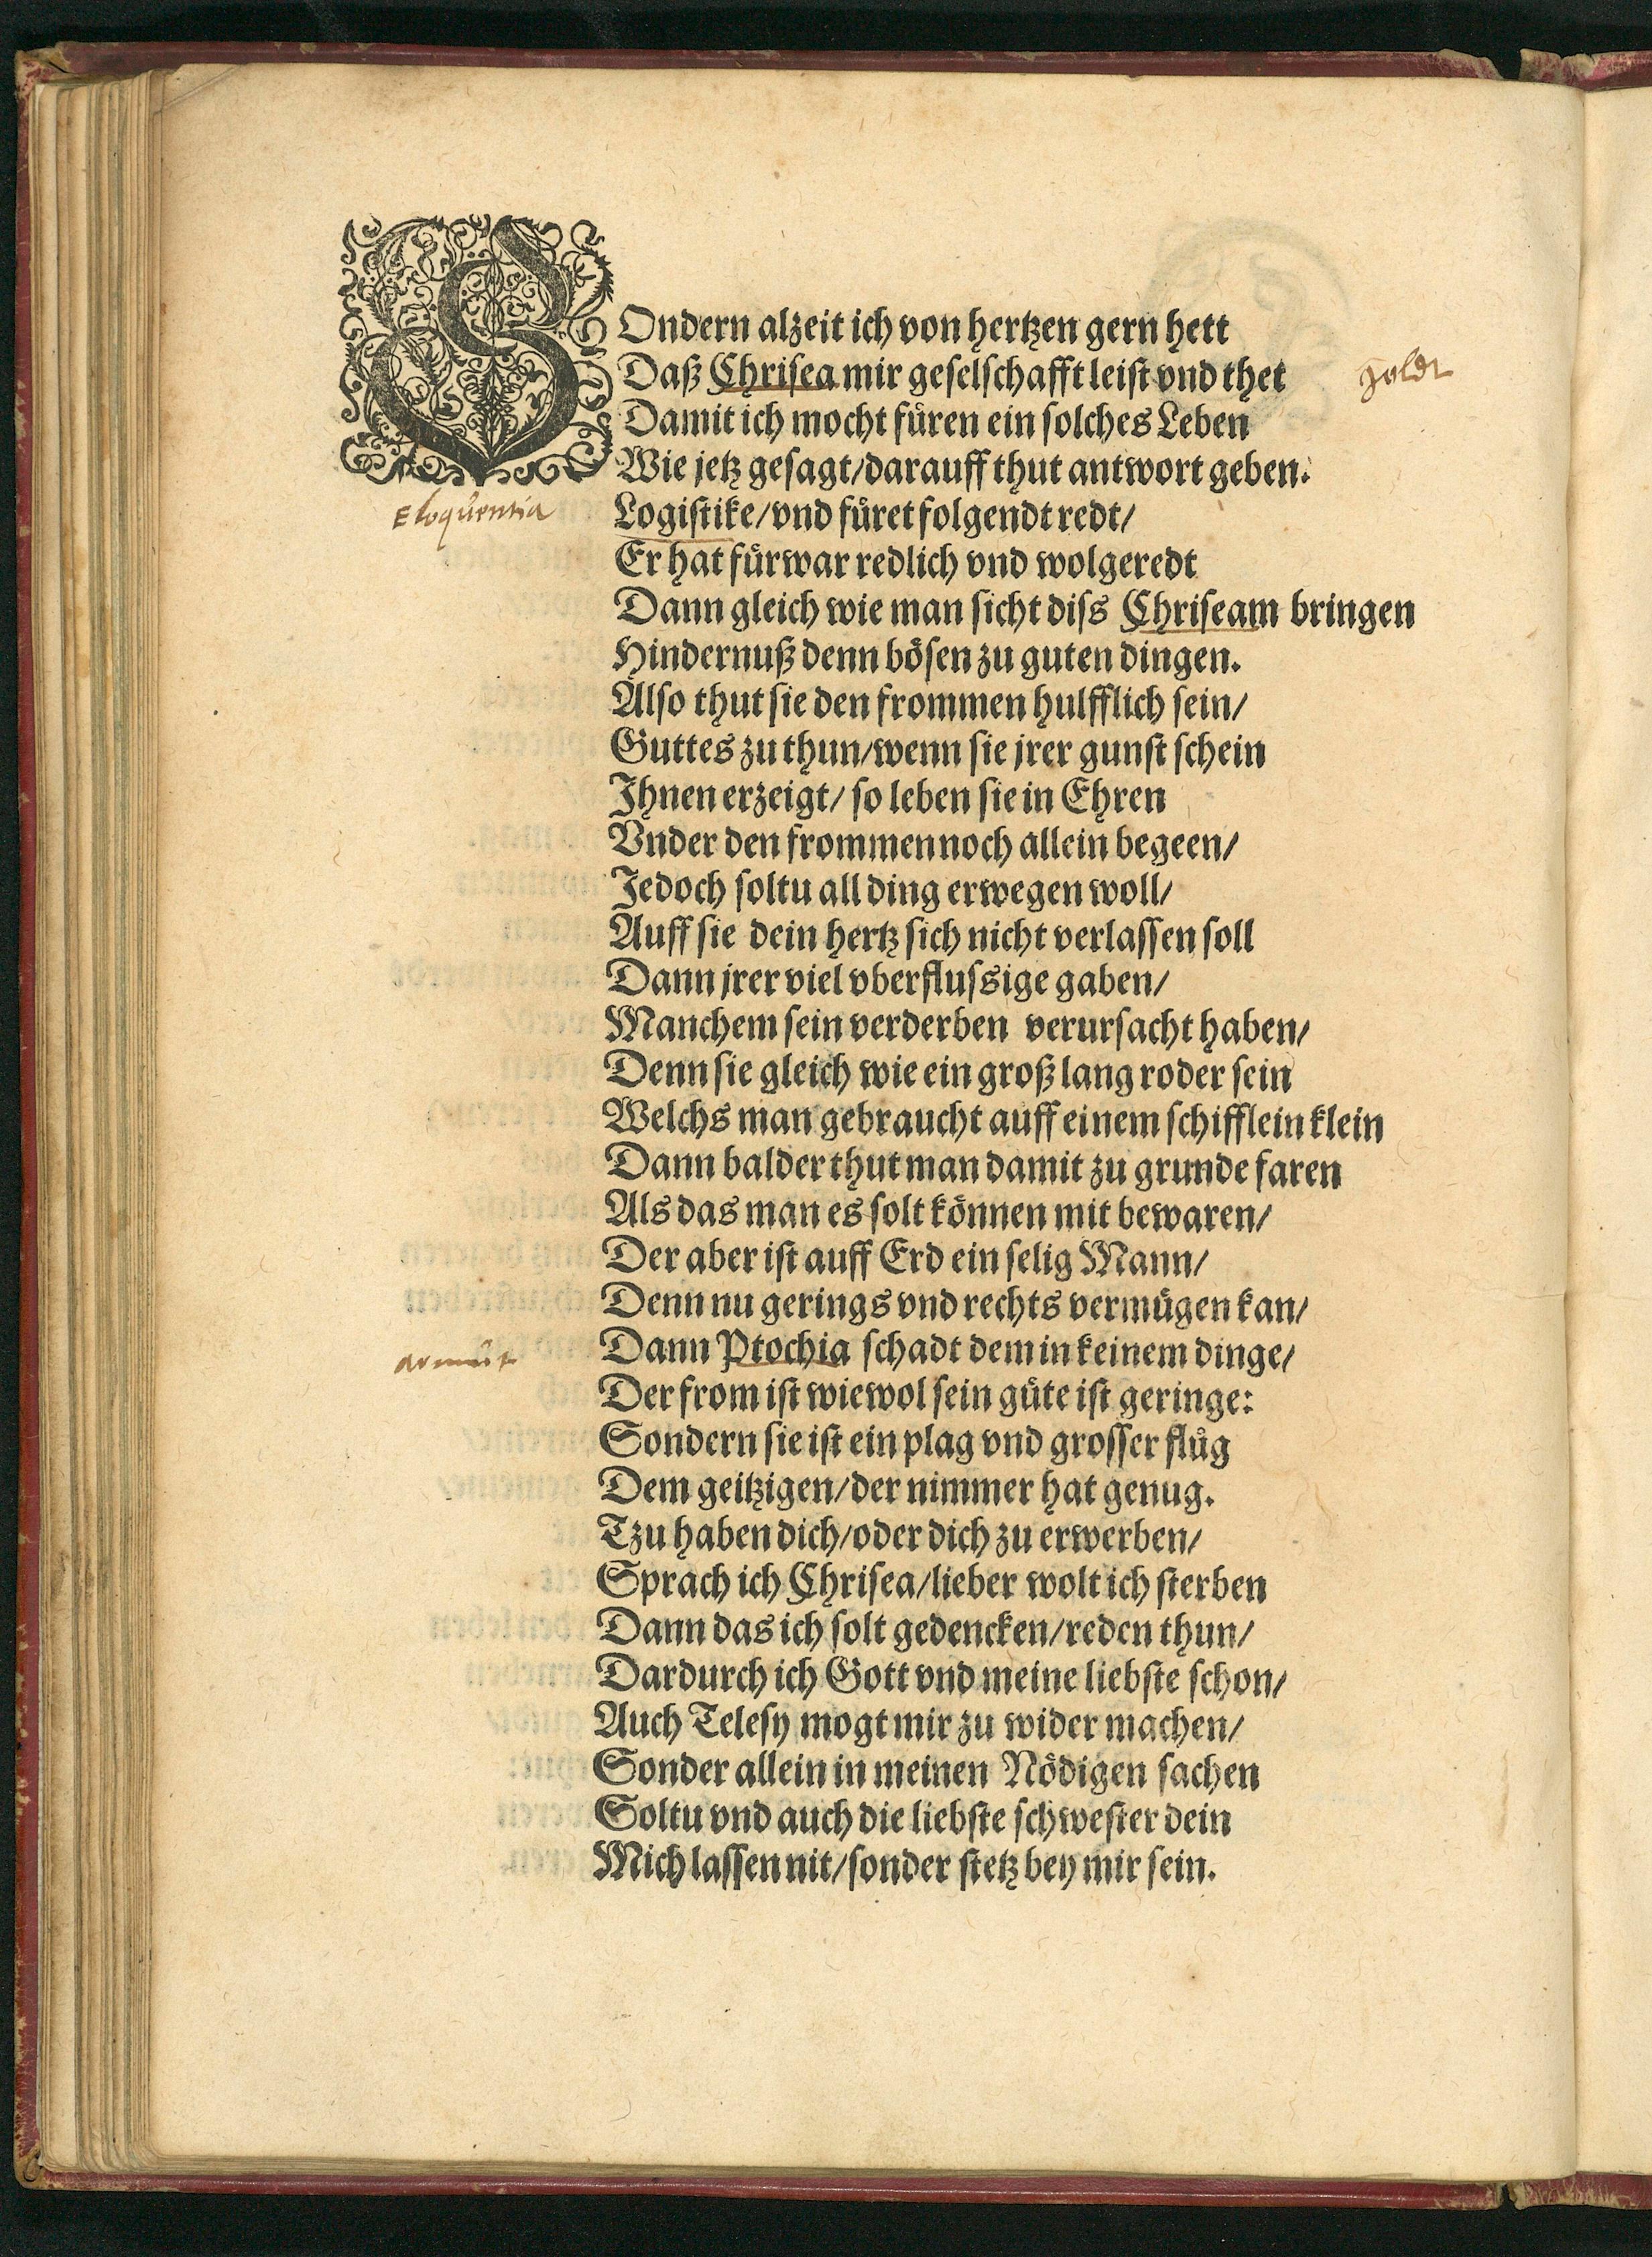 SOndern alzeit ich von hertzen gern hett
Daß Chrisea mir geselschafft leist vnd thet
goldt
Damit ich mocht fůren ein solches Leben
Wie jetz gesagt/darauff thut antwort geben.
Eloquentia
Logistike/vnd fůret folgendt redt/
Er hat fůrwar redlich vnd wolgeredt
Dann gleich wie man sicht diss Chriseam bringen
Hindernuß denn bösen zu guten dingen.
Also thut sie den frommen hulfflich sein/
Guttes zu thun/wenn sie jrer gunst schein
Ihnen erzeigt/ so leben sie in Ehren
Vnder den frommen noch allein begeen/
Jedoch soltu all ding erwegen woll/
Auff sie dein hertz sich nicht verlassen soll
Dann jrer viel vberflussige gaben/
Manchem sein verderben verursacht haben/
Denn sie gleich wie ein groß lang roder sein
Welchs man gebraucht auff einem schifflein klein
Dann balder thut man damit zu grunde faren
Als das man es solt können mit bewaren/
Der aber ist auff Erd ein selig Mann/
Denn nu gerings vnd rechts vermůgen kan/
armůt
Dann Ptochia schadt dem in keinem dinge/
Der from ist wiewol sein gůte ist geringe:
Sondern sie ist ein plag vnd grosser flůg
Dem geitzigen/der nimmer hat genug.
Tzu haben dich/oder dich zu erwerben/
Sprach ich Chrisea/lieber wolt ich sterben
Dann das ich solt gedencken/reden thun/
Dardurch ich Gott vnd meine liebste schon/
Auch Telesy mogt mir zu wider machen/
Sonder allein in meinen Nödigen sachen
Soltu vnd auch die liebste schwester dein
Mich lassen nit/sonder stetz bey mir sein.